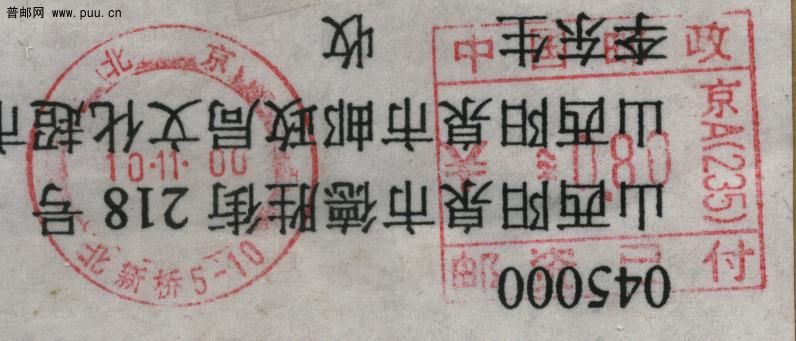 普邮网
www.puu.cn
045000
山西阳泉市德胜街 218 号
山西阳泉市邮政局文化超市
李东生 收
北京
10·11·00
北新桥5-10
中国邮政
京A(235)
0.80
邮资已付